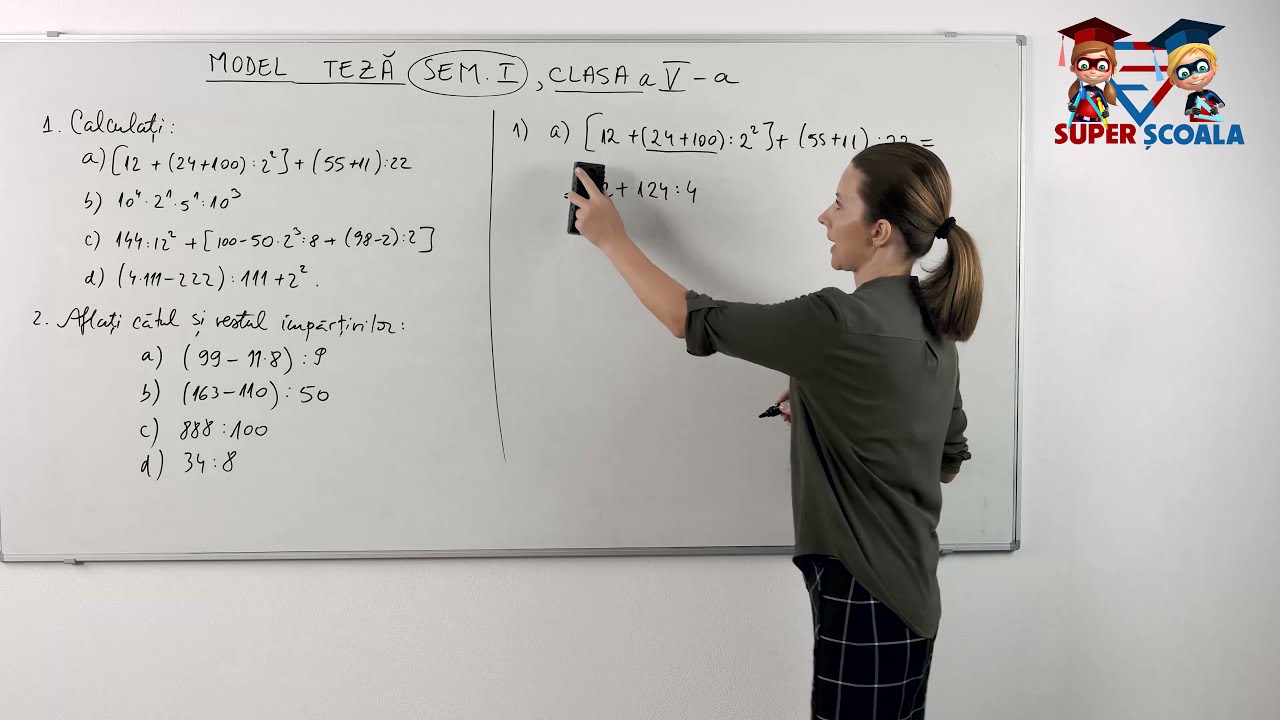 MODEL TEZĂ SEM. I, CLASA a V-a
1. Calculați:
a) [12 + (24+100) : 2²] + (55+11) : 22
b) 10⁴ · 2¹ · 5¹ : 10³
c) 144 : 12² + [100 - 50 · 2³ : 8 + (98-2) : 2]
d) (4·111 - 222) : 111 + 2².
2. Aflați câtul și restul împărțirilor:
a) (99 - 11·8) : 9
b) (163 - 110) : 50
c) 888 : 100
d) 34 : 8
1) a) [12 + (24+100) : 2²] + (55+11) : 22 =
= 2 + 124 : 4
SUPER ȘCOALA